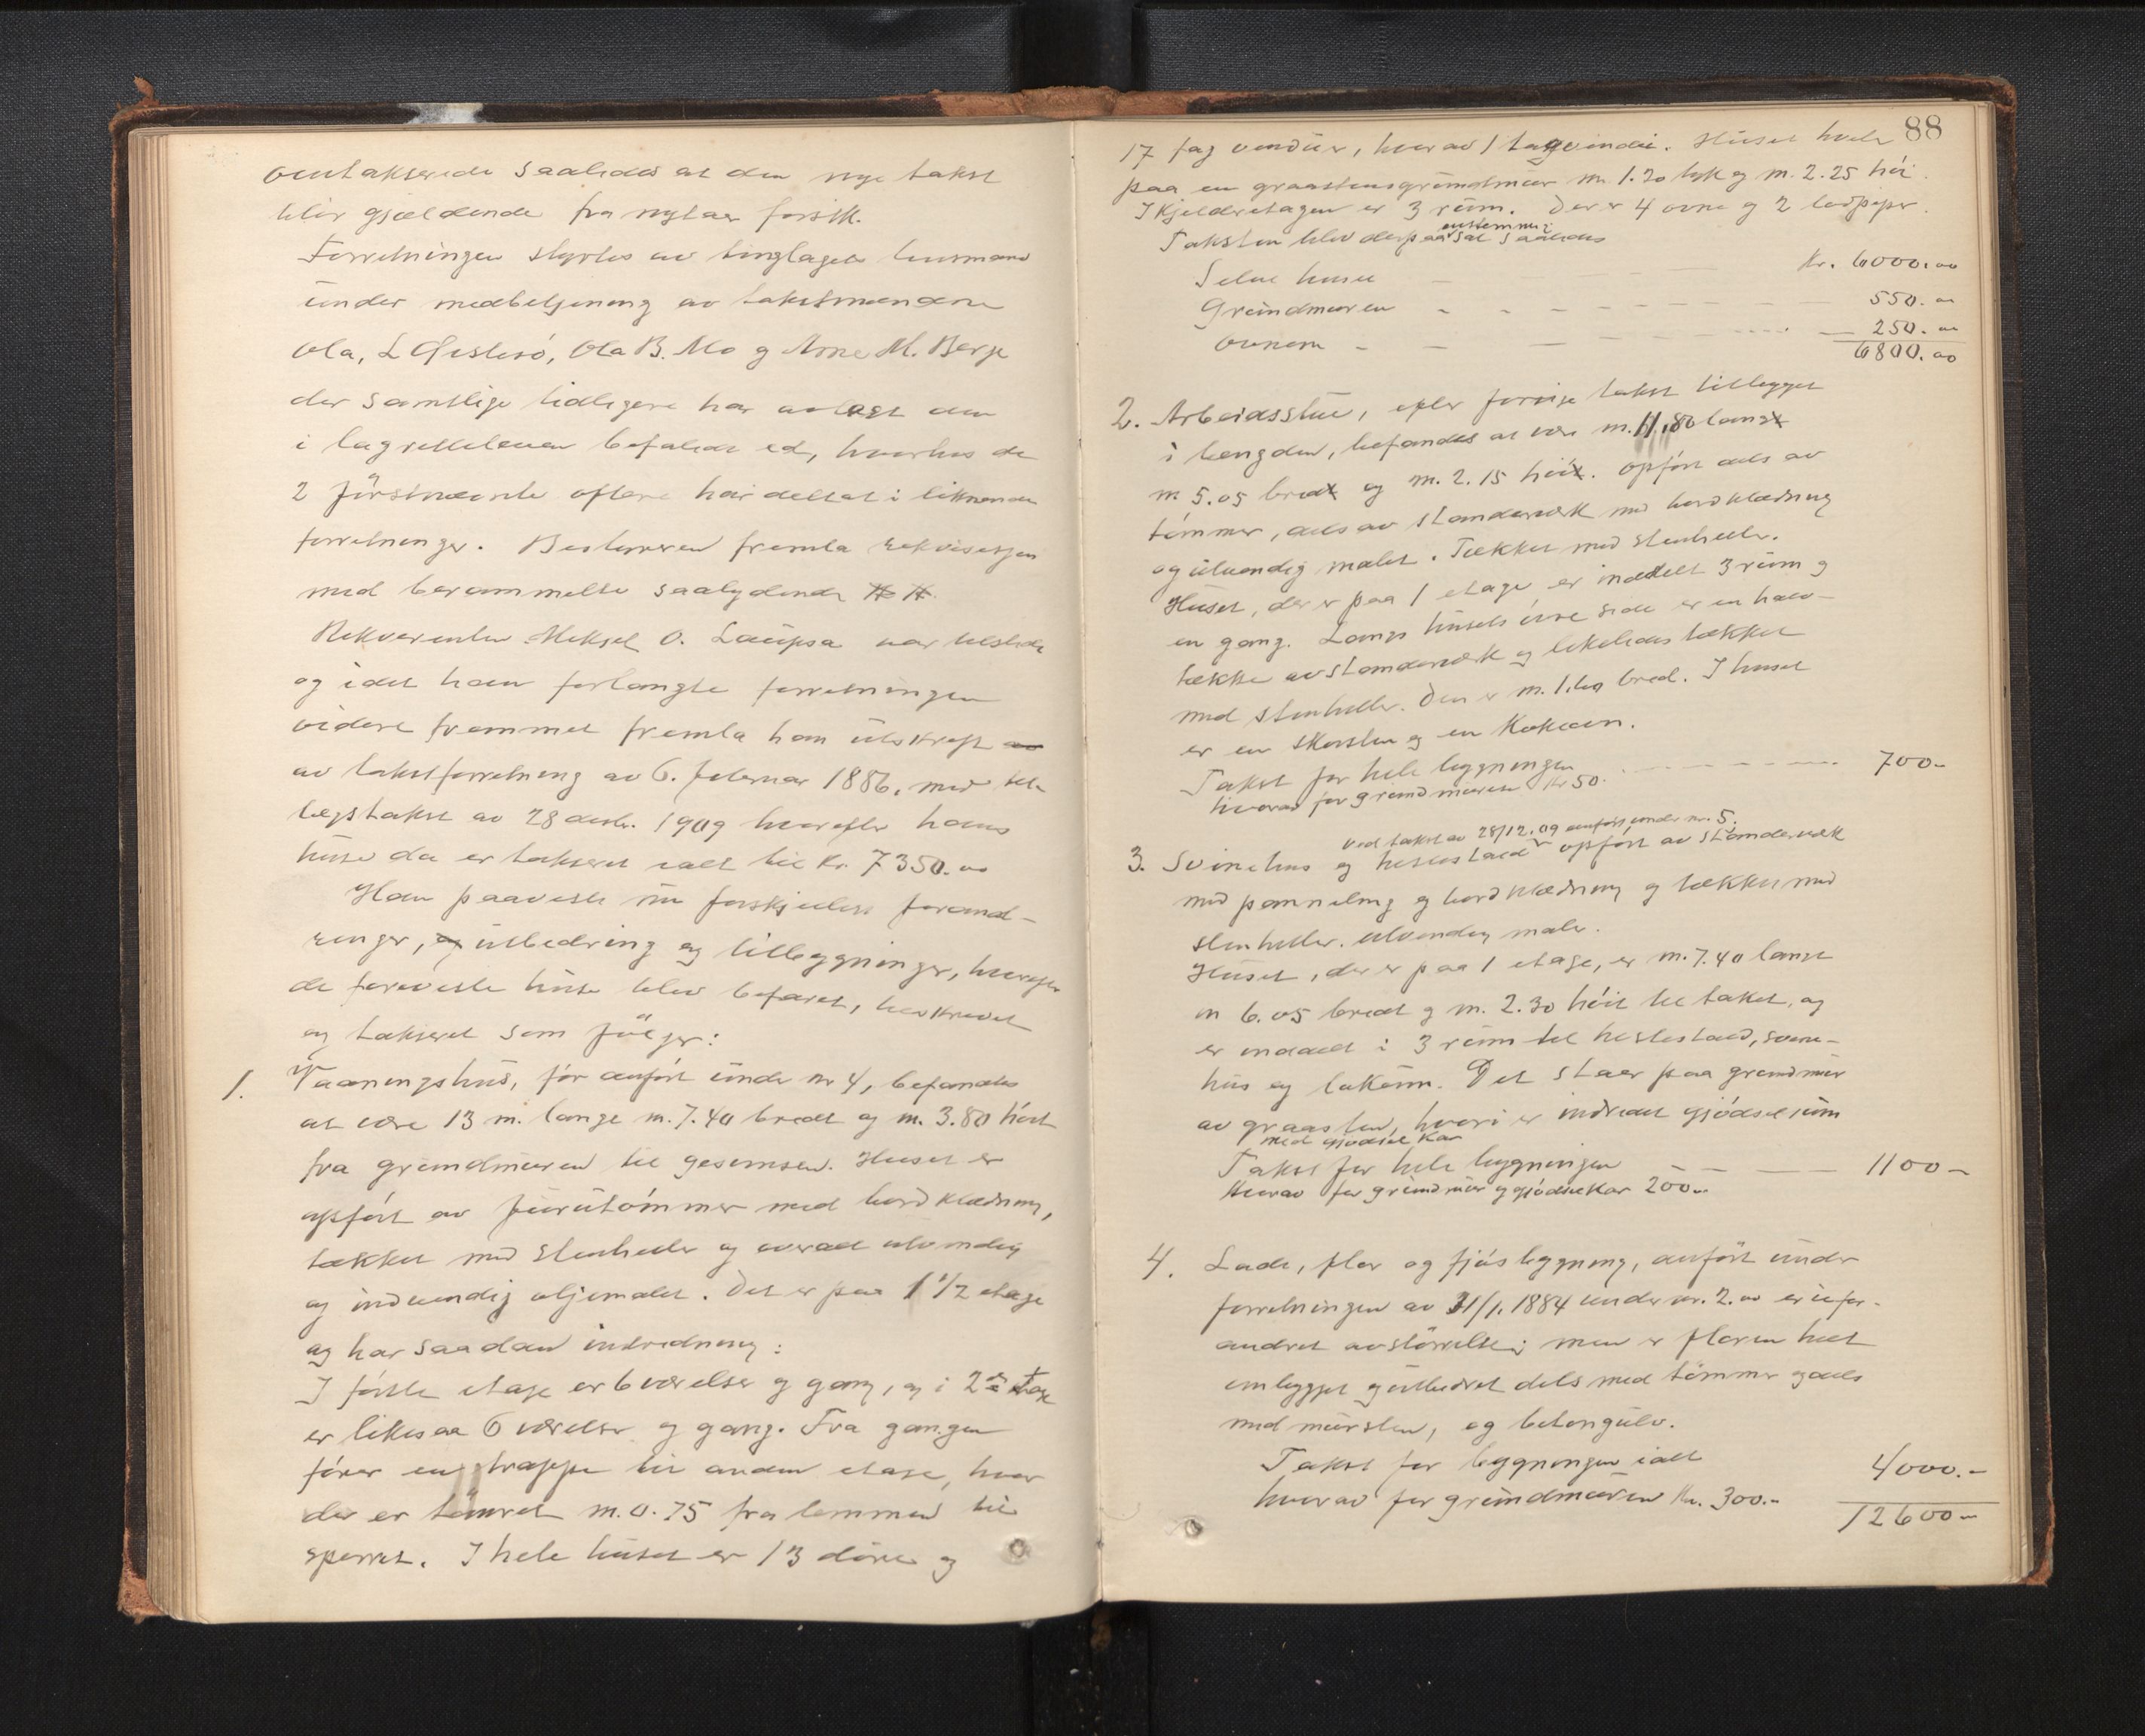 omtakserede saaledes at den nye takst
blir gjældende fra nytaar forstk.
Forretningen styrtes av tinglagets lensmand
under medbetjening av takstmændene
Ola, L Gjeslesö, Ola B. Mo og Arne M. Berge
der samtlige tidligere har avlagt den
i lagretteloven befalede ed, hvorhos de
2 förstnævnte oftere har deltat i liknende
forretninger. Bestyreren fremla rekvisisjon
med berammelse saalydende # #.
Rekvirenten Meksel O. Laupsa var tilstede
og idet han forlangte forretningen
videre fremmet fremla han utskrift av
av takstforretning av 6. februar 1886, med til-
lægstakst av 28 desbr. 1909 hvorefter hans
huse da er takseret ialt til kr. 7350.00
Han paaviste nu forskjellige forand-
ringer, og utbedring og tilbygninger, hvorefter
de foreviste huse blev befaret, beskrevet
og takseret som fölger:
1. Vaaningshus, för anfört under nr 4, befandtes
at være 13 m. lange m. 7.40 bredt og m. 3.80 höit
fra grundmuren til gesimsen. Huset er
opfört av furutömmer med bordklædning,
tækket med stenheller og overalt utvendig
og indvendig oljemalet. Det er paa 1 1/2 etage
og har saadan indredning:
I förste etage er 6 værelser og gang, og i 2den etage
er likesaa 6 værelser og gang. Fra gangen
förer en trappe til anden etage, hvor
der er tömret m. 0.75 fra lemmen til
sperret. I hele huset er 13 döre og
88
17 fag vinduer, hvorav 1 tagvindu. Huset hviler
paa en graastensgrundmur m. 1.20 tyk og m. 2.25 höi.
I Kjelderetagen er 3 rum. Der er 4 ovne og 2 lodpiper.
enstemmig
Taksten blev derpaa sat saaledes
Selve huset - Kr. 6000.00
Grundmuren - 550.00
Ovnene - 250.00
6800.00
2. Arbeidsstue, efter forrige takst tilbygget
i længden, befandtes at være m. 11.80 langt
m. 5.05 bredt og m. 2.15 höit. Opfört dels av
tömmer, dels av standerværk med bordklædning
og utvendig malet. Tækket med stenheller.
Huset, der er paa 1 etage er inddelt 3 rum og
en gang. Langs husets övre side er en halv-
tække av standerværk og likeledes tækket
med stenheller. Den er m. 1.60 bred. I huset
er en skorsten og en Kokovn.
Takst for hele bygningen - 700-
hvorav for grundmuren kr 50.
ved takst av 28/12.09 anfört under nr. 5,
3. Svinehus og hestestald opfört av standerværk
med panneling og bordklædning og tækket med
stenheller. utvendig malt.
Huset, der er paa 1 etage, er m. 7.40 langt
m 6.05 bredt og m. 2.30 höit til taket, og
er inddelt i 3 rum til hestestald, svine-
hus og lokum. Det staar paa grundmur
av graasten, hvori er indredet gjödselrum
med gjödselkar
Takst for hele bygningen - 1100-
hvorav for grundmur og gjödselkar 200-
4. Lade, flor og fjösbygning, anfört under
forretningen av 31/1. 1884 under nr. 2. er ufor-
andret av störrelse; men er floren helt
ombygget og utbedret dels med tömmer og dels
med mursten, og betongulv.
Takst for bygningen ialt 4000.-
hvorav for grundmuren Kr. 300.-
12600-